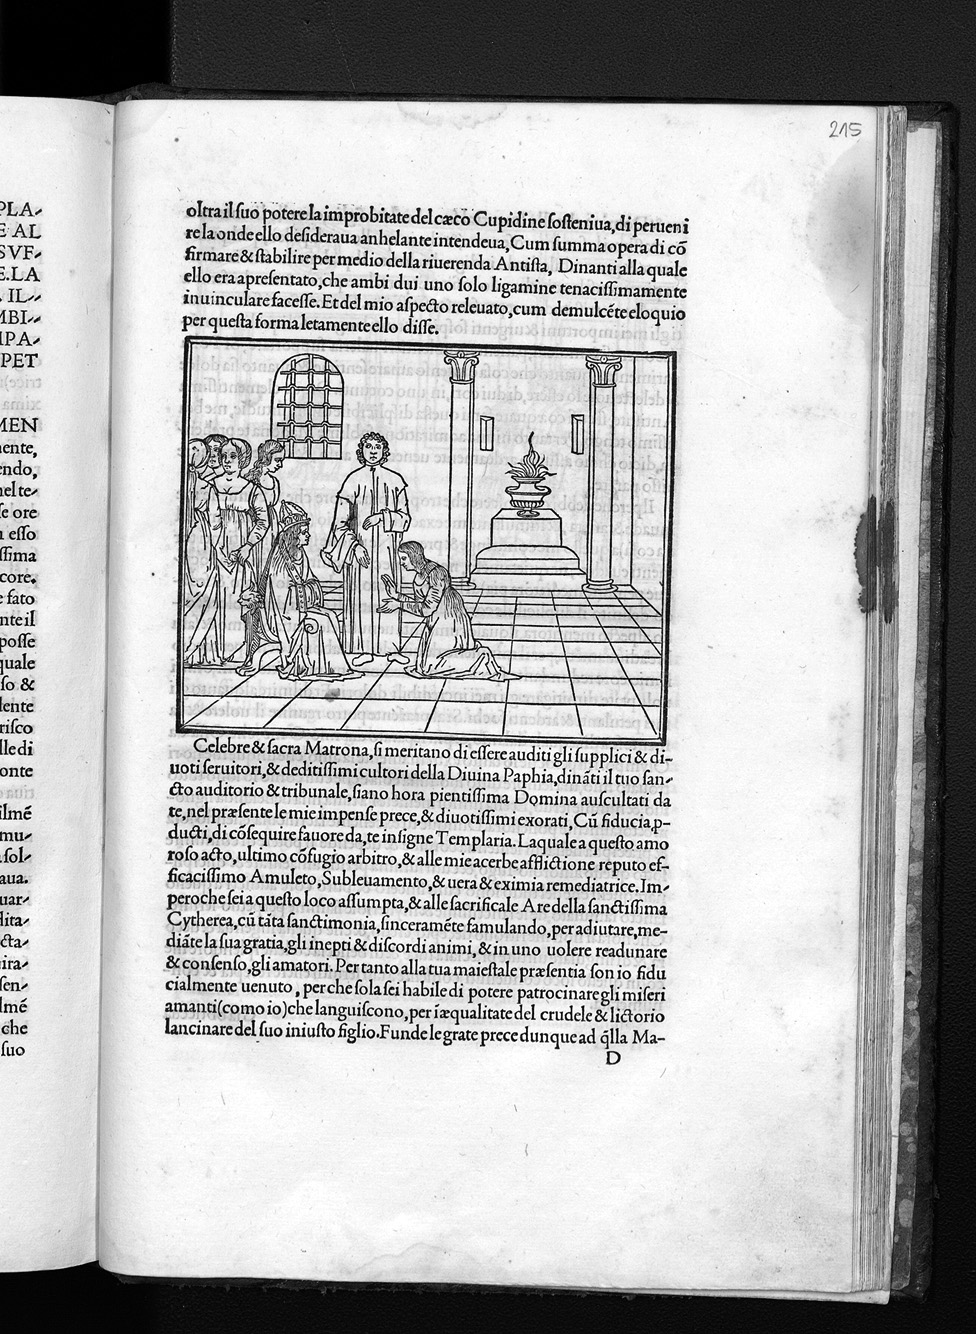 215
PLA-
E AL
SVF-
E.LA
. IL-
MBI-
IPA-
PET
MEN
nente,
endo,
nel te-
se ore
n esso
ssima
core.
e fato
nte il
posse
quale
so &
lente
risco
lle di
onte
ilmẽ
mu-
sol-
aua.
uar-
lita-
cta-
uira-
sen-
lmẽ
che
suo
oltra il suo potere la improbitate del cæco Cupidine sosteniua, di perueni
re la onde ello desideraua anhelante intendeua, Cum summa opera di cõ
firmare & stabilire per medio della riuerenda Antista, Dinanti alla quale
ello era apresentato, che ambi dui uno solo ligamine tenacissimamente
inuinculare facesse. Et del mio aspecto releuato, cum demulcẽte eloquio
per questa forma letamente ello disse.
Celebre & sacra Matrona, si meritano di essere auditi gli supplici & di-
uoti seruitori, & deditissimi cultori della Diuina Paphia, dinãti il tuo san-
cto auditorio & tribunale, siano hora pientissima Domina auscultati da
te, nel præsente le mie impense prece, & diuotissimi exorati, Cũ fiducia, p-
ducti, di cõsequire fauore da, te insigne Templaria. Laquale a questo amo
roso acto, ultimo cõfugio arbitro, & alle mie acerbe afflictione reputo ef-
ficacissimo Amuleto, Subleuamento, & uera & eximia remediatrice. Im-
peroche sei a questo loco assumpta, & alle sacrificale Are della sanctissima
Cytherea, cũ tãta sanctimonia, sinceramẽte famulando, per adiutare, me-
diãte la sua gratia, gli inepti & discordi animi, & in uno uolere readunare
& consenso, gli amatori. Per tanto alla tua maiestale præsentia son io fidu
cialmente uenuto, per che sola sei habile di potere patrocinare gli miseri
amanti (como io) che languiscono, per iæqualitate del crudele & lictorio
lancinare del suo iniusto figlio. Funde le grate prece dunque ad q̃lla Ma-
D